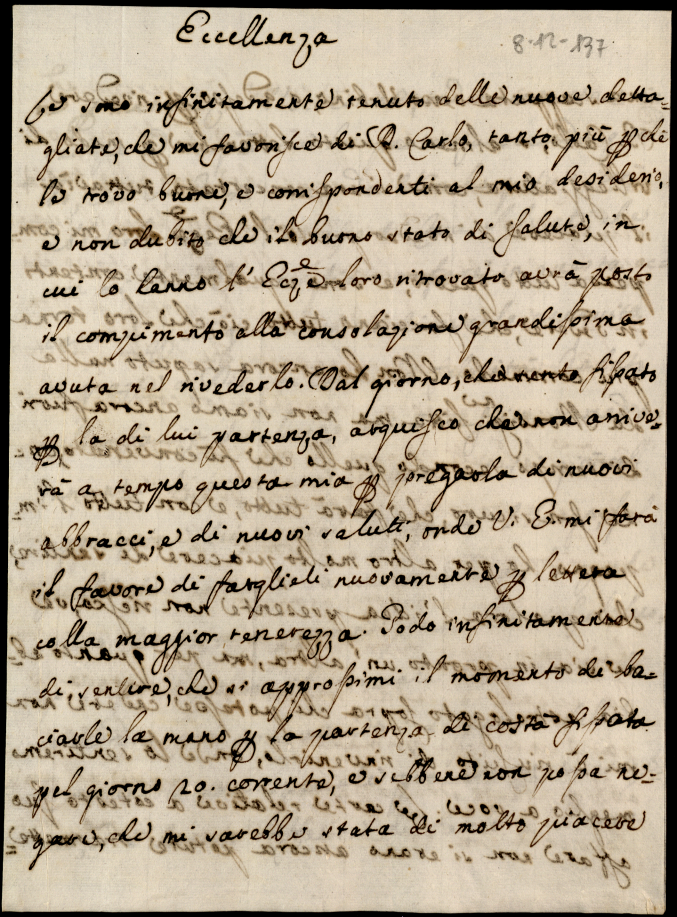 Eccellenza
8-12-137
Le sono infinitamente tenuto delle nuove detta=
gliate, che mi favorisce di D. Carlo, tanto più p che
le trovo buone, e corrispondenti al mio desiderio,
e non dubito che il buono stato di salute, in
cui lo hanno l' Ecz.e loro ritrovato avrà posto
il compimento alla consolazione grandissima
avuta nel rivederlo. Dal giorno, che fissato
p la di lui partenza, arguisco che non arrive=
rà a tempo questa mia p pregarla di nuovi
abbracci, e di nuovi saluti, onde V. E. mi farà
il favore di farglieli nuovamente p lettera
colla maggior tenerezza. Godo infinitamente
di sentire, che si approssimi il momento di ba=
ciarle la mano p la partenza di costà fissata
pel giorno 20. corrente, e sebbene non possa ne=
gare, che mi sarebbe stata di molto piacere